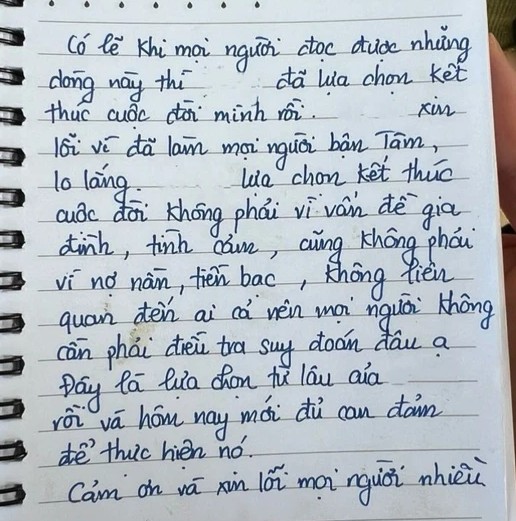 Có lẽ khi mọi người đọc được những
dòng này thì đã lựa chọn kết
thúc cuộc đời mình rồi. xin
lỗi vì đã làm mọi người bận Tâm,
lo lắng. lựa chọn kết thúc
cuộc đời không phải vì vấn đề gia
đình, tình cảm, cũng không phải
vì nợ nần, tiền bạc, không liên
quan đến ai cả nên mọi người không
cần phải điều tra suy đoán đâu ạ
Đây là lựa chọn từ lâu của
rồi và hôm nay mới đủ can đảm
để thực hiện nó.
Cảm ơn và xin lỗi mọi người nhiều